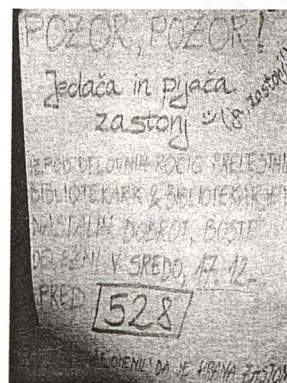 POZOR, POZOR!
Jedača in pijača
zastonj :) (8, zastonj!)
IZPOD DELOVNIH ROČIC PRELESTNIH
BIBLIOTEKARK & BIBLIOTEKARJEV
NASTALIH DOBROT, BOSTE
DELEŽNI V SREDO, 17. 12.
PRED 528
DA JE HRANA ZASTONJ